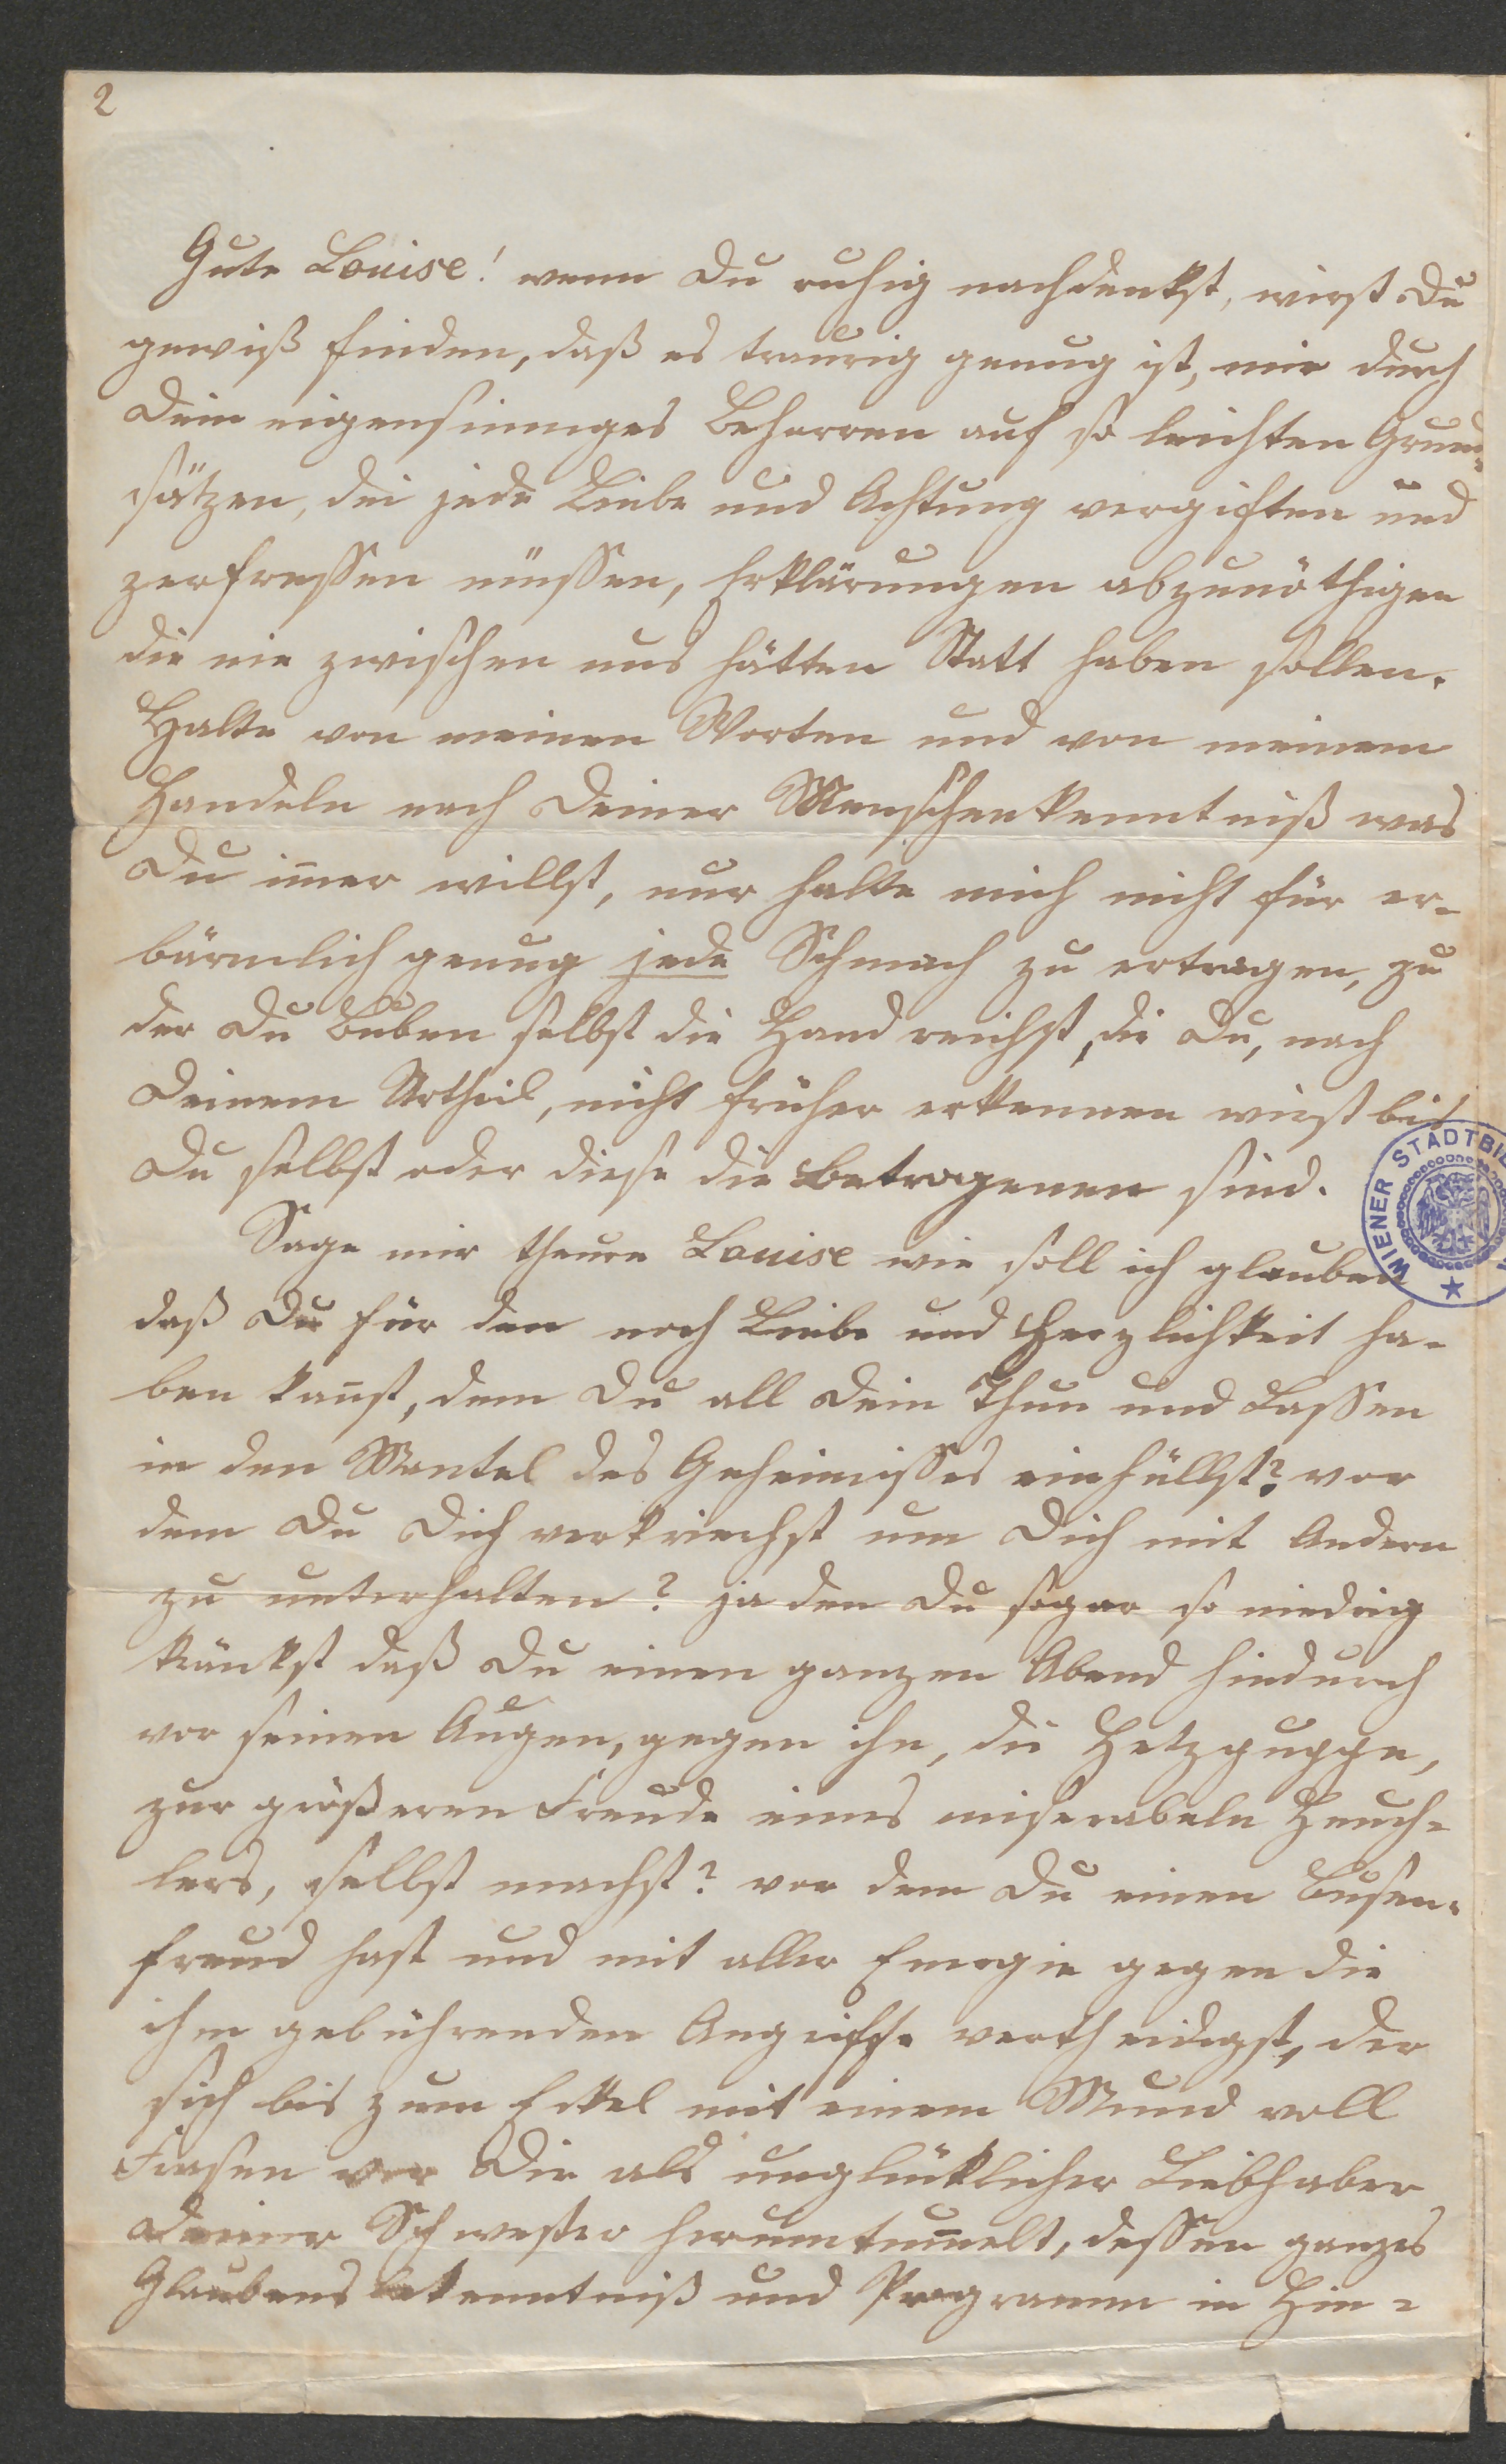 2
Gute Louise! wenn Du ruhig nachdenkst, wirst Du
gewiß finden, daß es traurig genug ist, mir durch
Dein eigensinniges Beharren auf so leichten Grund-
sätzen, die jede Liebe und Achtung vergiften und
zerfressen müssen, Erklärungen abzunöthigen
die nie zwischen uns hätten Statt haben sollen.
Halte von meinen Worten und von meinem
Handeln nach Deiner Menschenkenntniß was
Du im̅er willst, nur halte mich nicht für er-
bärmlich genug jede Schmach zu ertragen, zu
der Du Buben selbst die Hand reichst, die Du, nach
Deinem Urtheil, nicht früher erkennen wirst bis
Du selbst oder diese die Betrogenen sind.
Sage mir theure Louise wie soll ich glauben
daß Du für den noch Liebe und Herzlichkeit ha-
ben kan̅st, dem Du all Dein Thun und Lassen
in den Mantel des Geheimisses einhüllst? vor
dem Du Dich verkriechst um Dich mit Andern
zu unterhalten? ja den Du sogar so niedrig
kränkst daß Du einen ganzen Abend hindurch
vor seinen Augen, gegen ihn, die Hetzpuppe,
zur größeren Freude eines miserabeln Heuch-
lers, selbst machst? vor dem Du einen Busen-
freund hast und mit aller Energie gegen die
ihm gebührenden Angriffe vertheidigst, der
sich bis zum Eckel mit einem Mund voll
Frasen vor Dir als unglücklicher Liebhaber
Deiner Schwester herumtum̅elt, dessen ganzes
Glaubensbekenntniß und Programm in Hin-
WIENER STADTBI